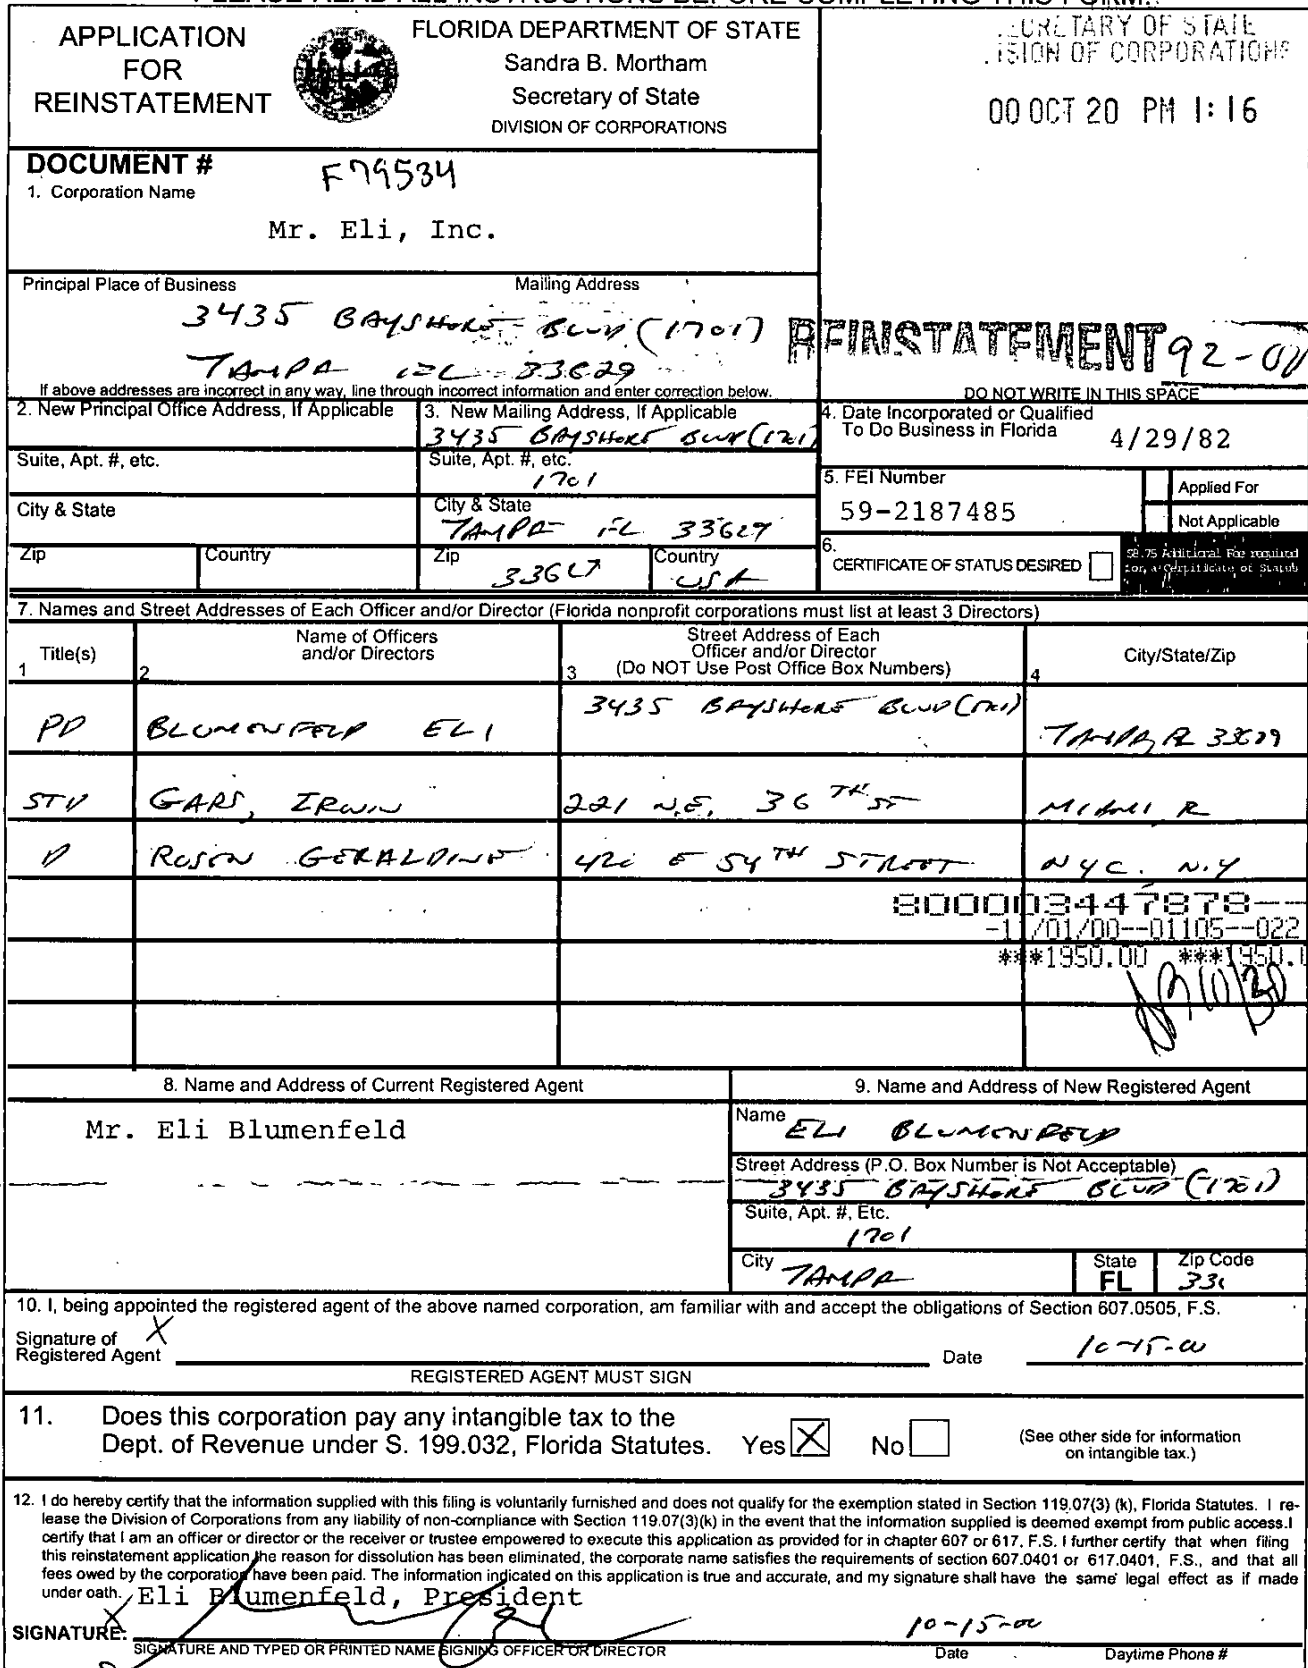 PLEASE READ ALL INSTRUCTIONS BEFORE COMPLETING THIS FORM.
APPLICATION
FOR
REINSTATEMENT
FLORIDA DEPARTMENT OF STATE
Sandra B. Mortham
Secretary of State
DIVISION OF CORPORATIONS
TARY OF STATE
OF CORPORATIONS
00 OCT 20 PM 1:16
DOCUMENT # F79534
1. Corporation Name
Mr. Eli, Inc.
Principal Place of Business
Mailing Address
3435 BAYSHORE BLVD (1701)
TAMPA FL 33629
REINSTATEMENT 92-00
If above addresses are incorrect in any way, line through incorrect information and enter correction below.
DO NOT WRITE IN THIS SPACE
2. New Principal Office Address, If Applicable
3. New Mailing Address, If Applicable
3435 BAYSHORE BLVD (1701)
4. Date Incorporated or Qualified
To Do Business in Florida
4/29/82
Suite, Apt. #, etc.
Suite, Apt. #, etc.
1701
5. FEI Number
59-2187485
Applied For
Not Applicable
City & State
City & State
TAMPA FL 33629
6.
CERTIFICATE OF STATUS DESIRED
$8.75 Additional Fee required
for a Certificate of Status
Zip
Country
Zip
33629
Country
USA
7. Names and Street Addresses of Each Officer and/or Director (Florida nonprofit corporations must list at least 3 Directors)
1 Title(s)
2 Name of Officers
and/or Directors
3 Street Address of Each
Officer and/or Director
(Do NOT Use Post Office Box Numbers)
4 City/State/Zip
PD BLUMENFELD ELI 3435 BAYSHORE BLVD (1701) TAMPA, FL 33629
STD GARS, IRWIN 221 N.E. 36TH ST MIAMI, FL
D ROSEN GERALDINE 420 E 54TH STREET NYC. N.Y
800003447878--
-11/01/00--01105--022
***1950.00 ***1950.
10/30
8. Name and Address of Current Registered Agent
Mr. Eli Blumenfeld
9. Name and Address of New Registered Agent
Name ELI BLUMENFELD
Street Address (P.O. Box Number is Not Acceptable)
3435 BAYSHORE BLVD (1701)
Suite, Apt. #, Etc.
1701
City TAMPA
State FL
Zip Code 336
10. I, being appointed the registered agent of the above named corporation, am familiar with and accept the obligations of Section 607.0505, F.S.
Signature of
Registered Agent X
Date 10-15-00
REGISTERED AGENT MUST SIGN
11. Does this corporation pay any intangible tax to the
Dept. of Revenue under S. 199.032, Florida Statutes. Yes X No
(See other side for information
on intangible tax.)
12. I do hereby certify that the information supplied with this filing is voluntarily furnished and does not qualify for the exemption stated in Section 119.07(3) (k), Florida Statutes. I re-
lease the Division of Corporations from any liability of non-compliance with Section 119.07(3)(k) in the event that the information supplied is deemed exempt from public access.I
certify that I am an officer or director or the receiver or trustee empowered to execute this application as provided for in chapter 607 or 617, F.S. I further certify that when filing
this reinstatement application the reason for dissolution has been eliminated, the corporate name satisfies the requirements of section 607.0401 or 617.0401, F.S., and that all
fees owed by the corporation have been paid. The information indicated on this application is true and accurate, and my signature shall have the same legal effect as if made
under oath. Eli Blumenfeld, President
SIGNATURE: X
10-15-00
SIGNATURE AND TYPED OR PRINTED NAME SIGNING OFFICER OR DIRECTOR
Date
Daytime Phone #